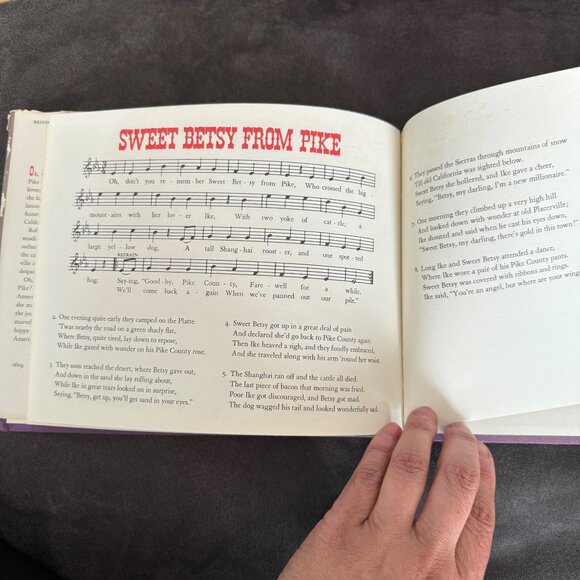 REINFO
SWEET BETSY FROM PIKE
Oh, don't you re- mem-ber Sweet Bet-sy from Pike, Who crossed the big
mount-ains with her lov-er Ike, With two yoke of cat-tle, a
large yel-low dog, A tall Shang-hai roost-er, and one spot-ted
REFRAIN
hog. Say-ing, "Good-by, Pike Coun-ty, Fare-well for a while.
We'll come back a- gain When we've panned out our pile."
2. One evening quite early they camped on the Platte.
'Twas nearby the road on a green shady flat,
Where Betsy, quite tired, lay down to repose,
While Ike gazed with wonder on his Pike County rose.
3. They soon reached the desert, where Betsy gave out,
And down in the sand she lay rolling about,
While Ike in great tears looked on in surprise,
Saying, "Betsy, get up, you'll get sand in your eyes."
4. Sweet Betsy got up in a great deal of pain
And declared she'd go back to Pike County again.
Then Ike heaved a sigh, and they fondly embraced,
And she traveled along with his arm 'round her waist.
5. The Shanghai ran off and the cattle all died.
The last piece of bacon that morning was fried.
Poor Ike got discouraged, and Betsy got mad.
The dog wagged his tail and looked wonderfully sad.
6. They passed the Sierras through mountains of snow
Till old California was sighted below.
Sweet Betsy she hollered, and Ike gave a cheer,
Saying, "Betsy, my darling, I'm a new millionaire."
7. One morning they climbed up a very high hill
And looked down with wonder at old Placerville;
Ike shouted and said when he cast his eyes down,
"Sweet Betsy, my darling, there's gold in this town!"
8. Long Ike and Sweet Betsy attended a dance,
Where Ike wore a pair of his Pike County pants.
Sweet Betsy was covered with ribbons and rings.
Ike said, "You're an angel, but where are your wing
0609